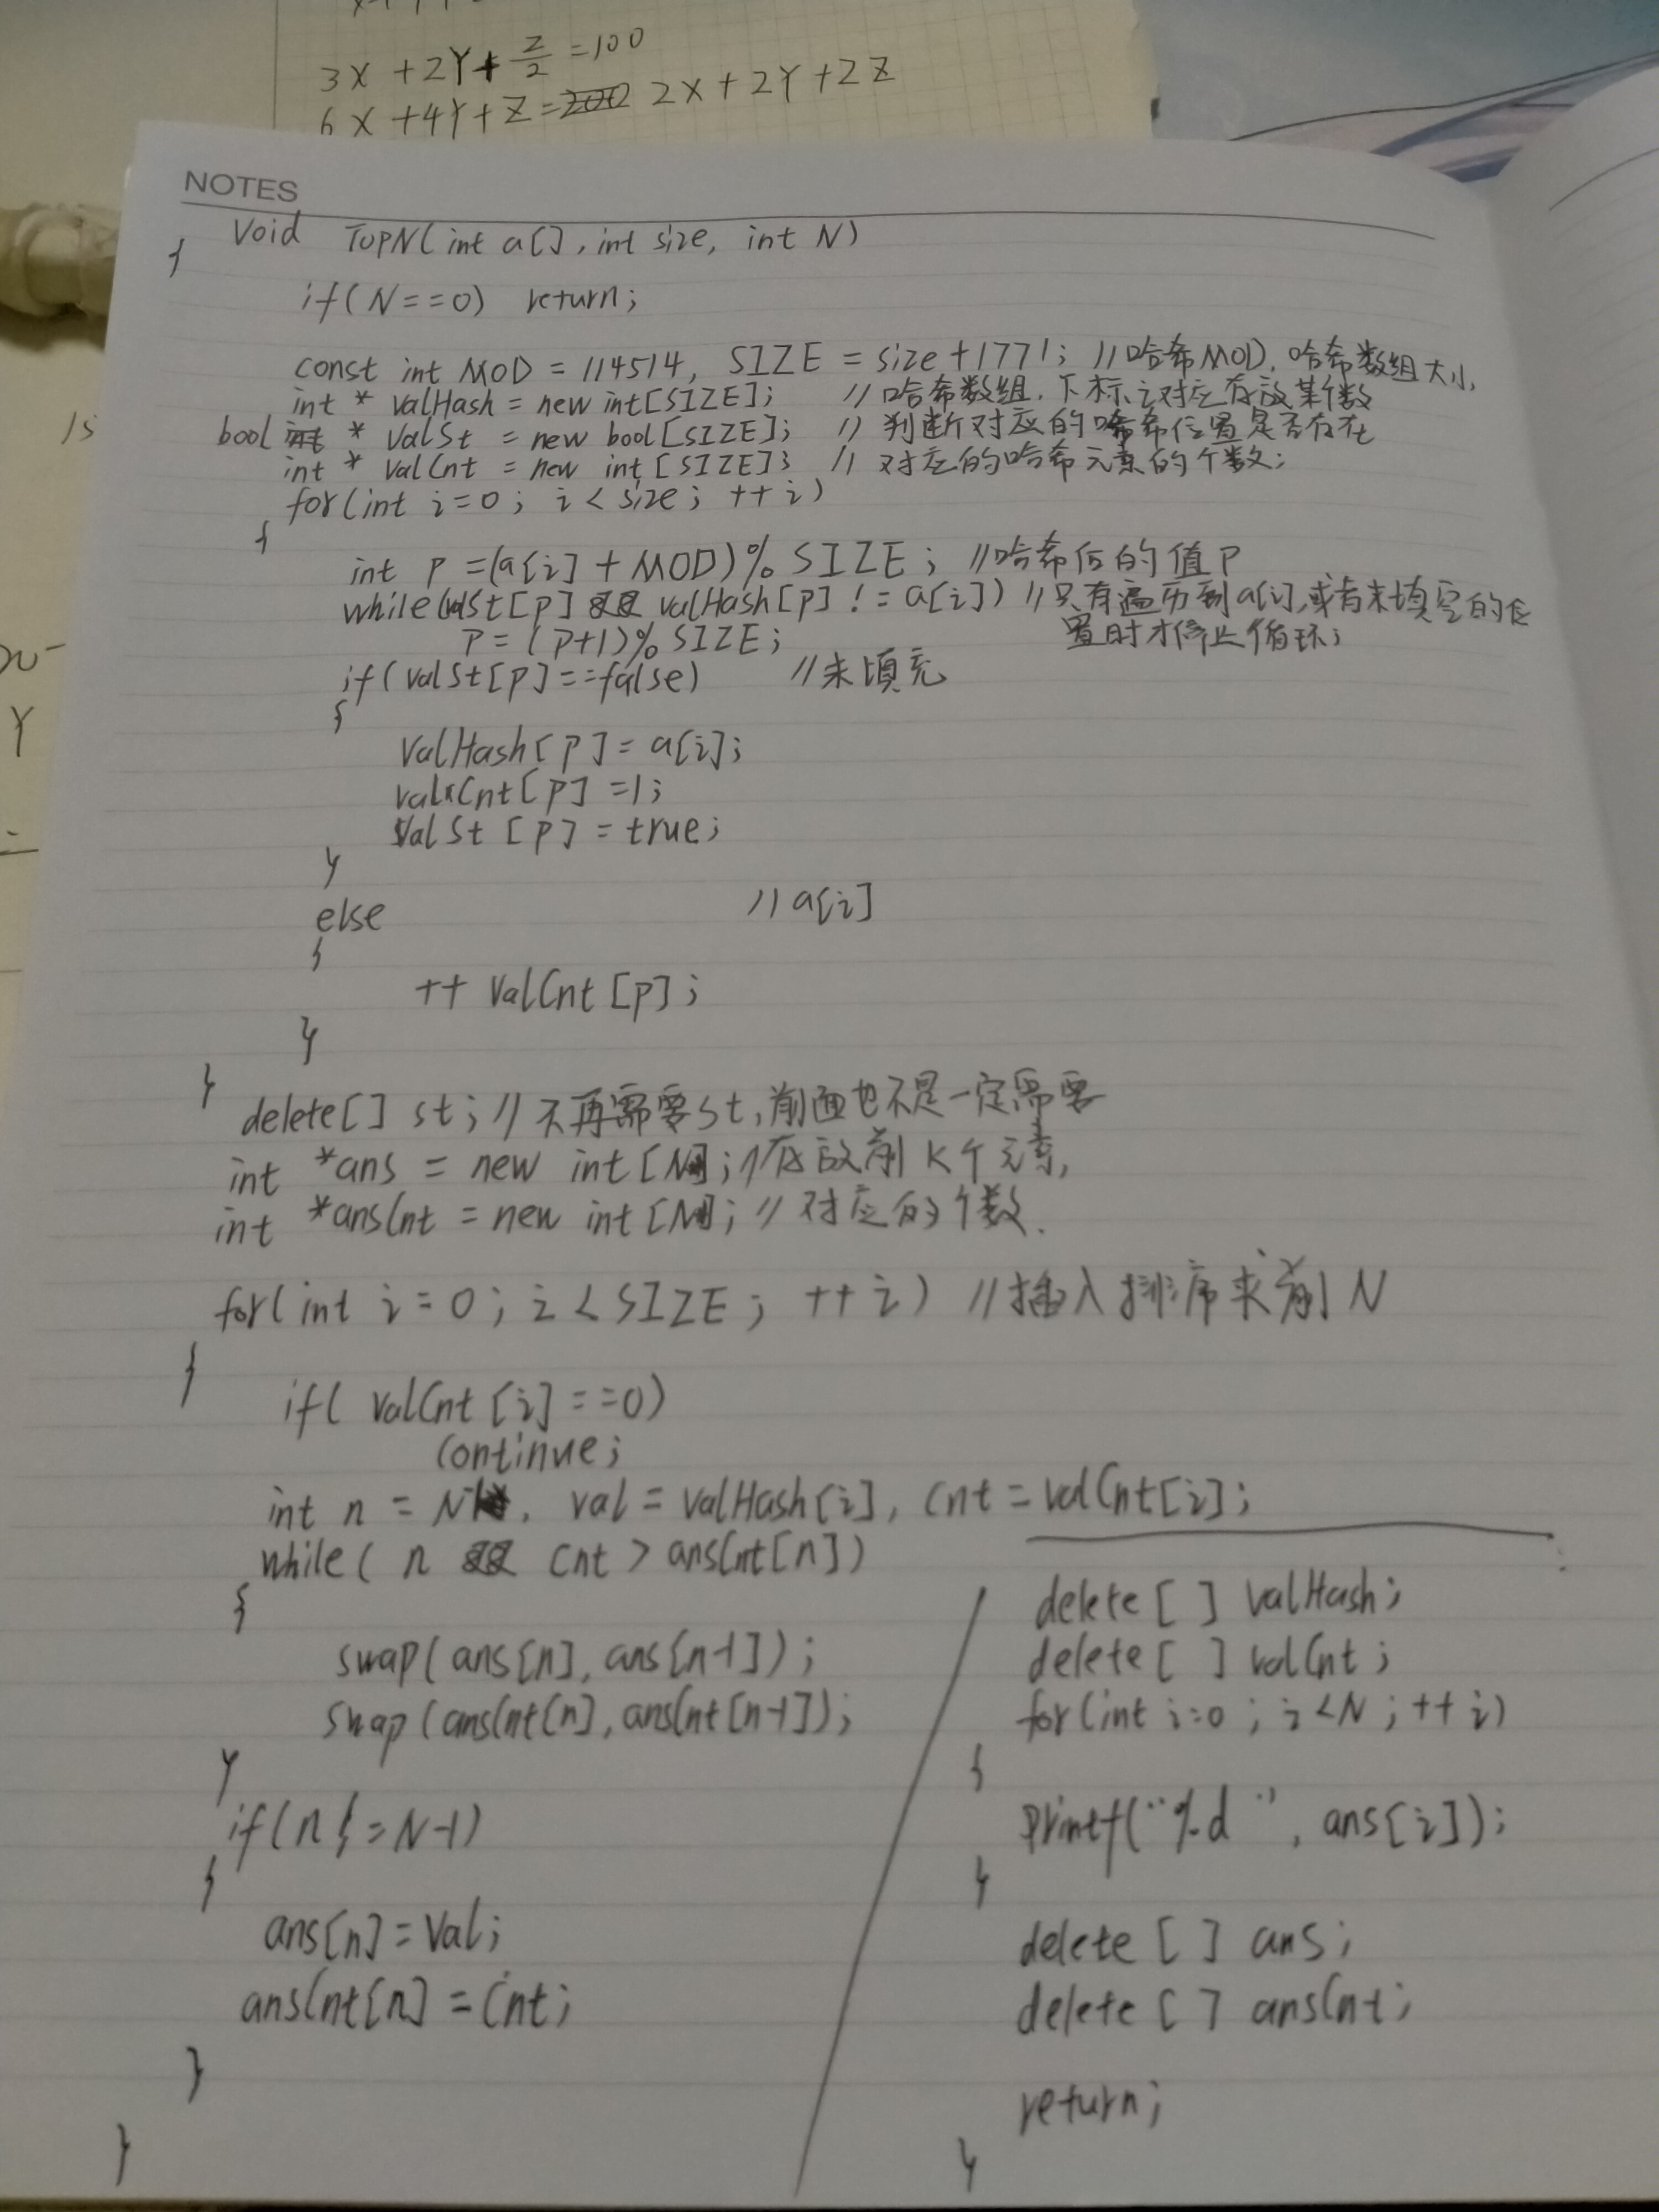 3X + 2Y + Z/2 = 100
6X + 4Y + Z = 200 2X + 2Y + 2Z
NOTES
Void TopN(int a[], int size, int N)
{
if(N==0) return;
const int MOD = 114514, SIZE = size+1771; //哈希MOD, 哈希数组大小,
int * valHash = new int[SIZE]; //哈希数组, 下标i对应存放某个数
bool int * ValSt = new bool[SIZE]; // 判断对应的哈希位置是否存在
int * ValCnt = new int[SIZE]; // 对应的哈希元素的个数;
for(int i=0; i<size; ++i)
{
int P =(a[i] + MOD)% SIZE; //哈希后的值P
while(valSt[p] && valHash[p] != a[i]) //只有遍历到a[i],或者未填空的位
置时才停止循环;
P = (P+1)% SIZE;
if(valSt[p]==false) //未填充
{
ValHash[p]= a[i];
valCnt[p] =1;
ValSt [p] = true;
}
else //a[i]
{
++ ValCnt[p];
}
}
delete[] st; // 不再需要st,前面也不是一定需要
int *ans = new int[N]; //存放前K个元素,
int *ansCnt = new int[N]; // 对应的个数.
for(int i=0; i<SIZE; ++i) //插入排序求前N
{
if( ValCnt[i]==0)
Continue;
int n = N-1, val = valHash[i], cnt = valCnt[i];
while( n && Cnt > ansCnt[n])
{
swap(ans[n], ans[n-1]);
swap(ansCnt[n], ansCnt[n-1]);
}
if(n != N-1)
{
ans[n]=Val;
ansCnt[n] = Cnt;
}
}
delete[ ] valHash;
delete[ ] valCnt;
for(int i=0; i<N; ++i)
{
Printf("%d ", ans[i]);
}
delete[ ] ans;
delete[ ] ansCnt;
return;
}
15
Y